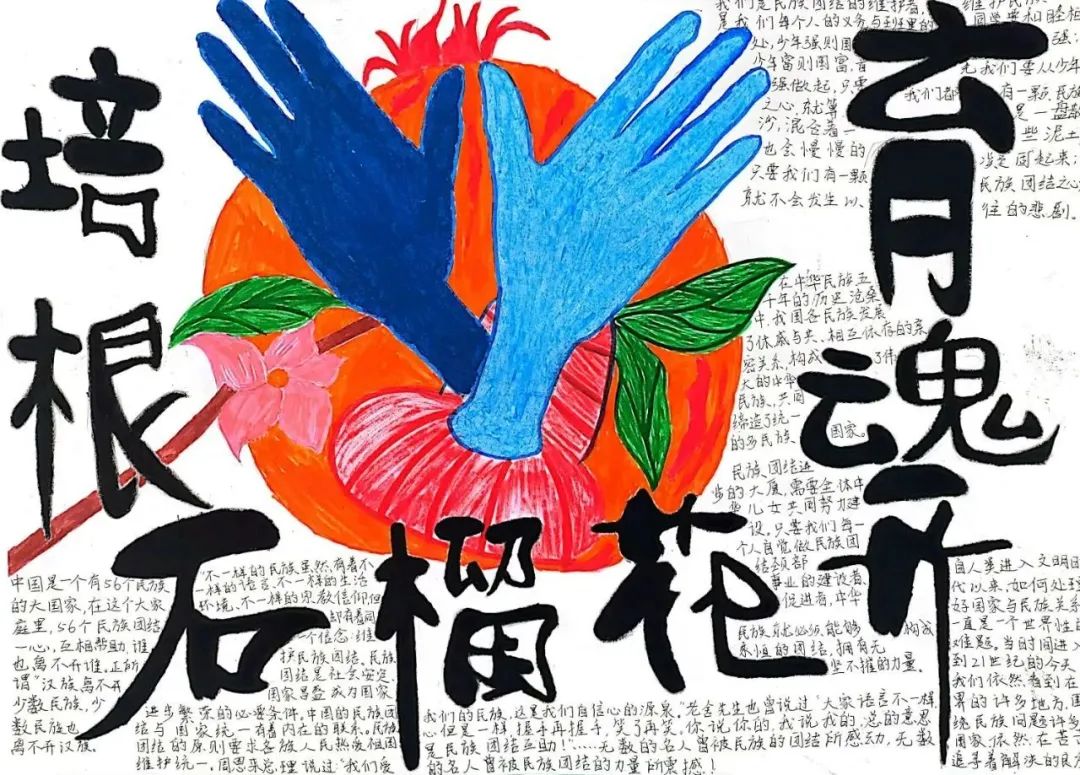 培根
育魂
石榴花开
我们是民族团结的维护者,
是我们每个人的义务与
处,少年强则国
少年富则国富,
强做起,只要
之心就等
沙,混合着一
也会慢慢的
只要我们有一颗
就不会发生以
维护民族
同学要和睦相
强;
我们要从少年
我们都有一颗民族
是一盘散
些泥土
凝固起来;
民族团结之心
往的悲剧。
在中华民族五
千年的历史沧桑
中,我国各民族发展
了休戚与共、相互依存的亲
密关系,构成了伟
大的中华
民族、共同
缔造了统一
的多民族国家。
民族团结进
步的大厦,需要全体中
华儿女共同努力建
设。只要我们每一
个人自觉做民族团
结
事业的建设者、
促进者,中华
民族就必须能够构成
永恒的团结,拥有无
坚不摧的力量。
自人类进入文明时
代以来,如何处理
好国家与民族关系
一直是一个世界性的
难题。当时间进入
到21世纪的今天
我们依然看到在
界的许多地方,围
绕民族问题许多
国家依然在苦
追寻着解决的良方
中国是一个有56个民族
的大国家,在这个大家
庭里,56个民族团结
一心,互相帮助,谁
也离不开谁。正所
谓“汉族离不开
少数民族,少
数民族也
离不开汉族。
“不一样的民族虽然有着不
一样的语言、不一样的生活
环境、不一样的宗教信仰但
却有着同
一个信念:维
护民族团结。民族
团结是社会安定、
国家昌盛成为国家
进步繁荣的必要条件。中国的民族团
结与国家统一有着内在的联系。民族
团结的原则要求各族人民热爱祖国
维护统一。周恩来总理说过“我们爱
我们的民族,这是我们自信心的源泉。”老舍先生也曾说过“大家语言不一样,
心但是一样,握手再握手,笑了再笑。你说你的,我说我的,总的意思
是民族团结互助!”……无数的名人曾被民族的团结所感动,无数
的名人曾被民族团结的力量所震撼!